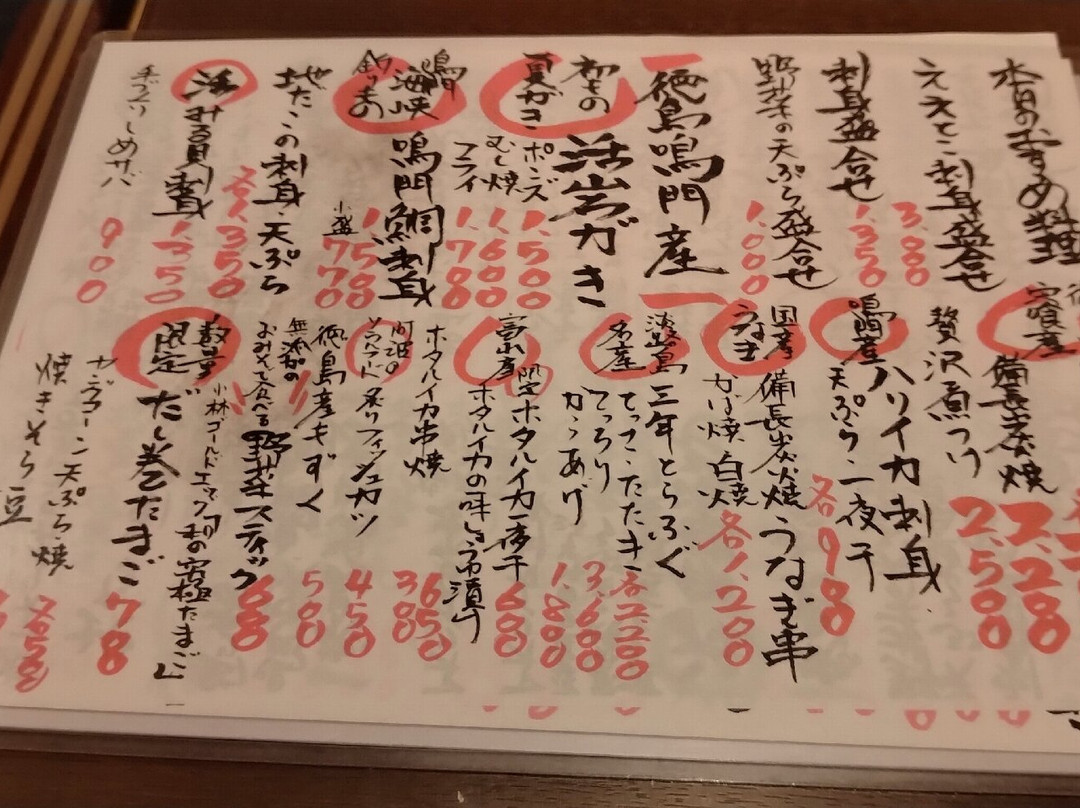 本日のおすすめ料理
ええとこ刺身盛合せ
3,800
刺身盛合せ
1,350
野菜の天ぷら盛合せ
1,000
徳島鳴門産
初もの 活岩がき
夏がき
ポンズ 1,500
むし焼 1,600
フライ 1,780
鳴門海峡
釣りもの
鳴門鯛刺身
1,500
小盛 770
地だこの刺身・天ぷら
各1,350
活みる貝刺身
1,350
手づくりしめサバ
900
備長炭焼
2,280
贅沢煮つけ
2,500
鳴門産
ハリイカ刺身
天ぷら 一夜干
各980
国産うなぎ
備長炭火焼うなぎ串
かば焼 白焼
各1,200
淡路島名産
三年とらふぐ
てっさ・たたき 各2,200
てっちり 3,600
からあげ 1,800
富山産
限定
ホタルイカ一夜干
600
ホタルイカの味しょうゆ漬け
650
ホタルイカ串焼
380
町現の
ソウルフード
炙りフィッシュカツ
450
徳島産もずく
500
無添加の
おみそで食べる 野菜スティック
680
小林ゴールドエッグ「和の宮極たまご」
数量限定
だし巻たまご
780
ヤングコーン天ぷら・焼
各550
焼きそら豆